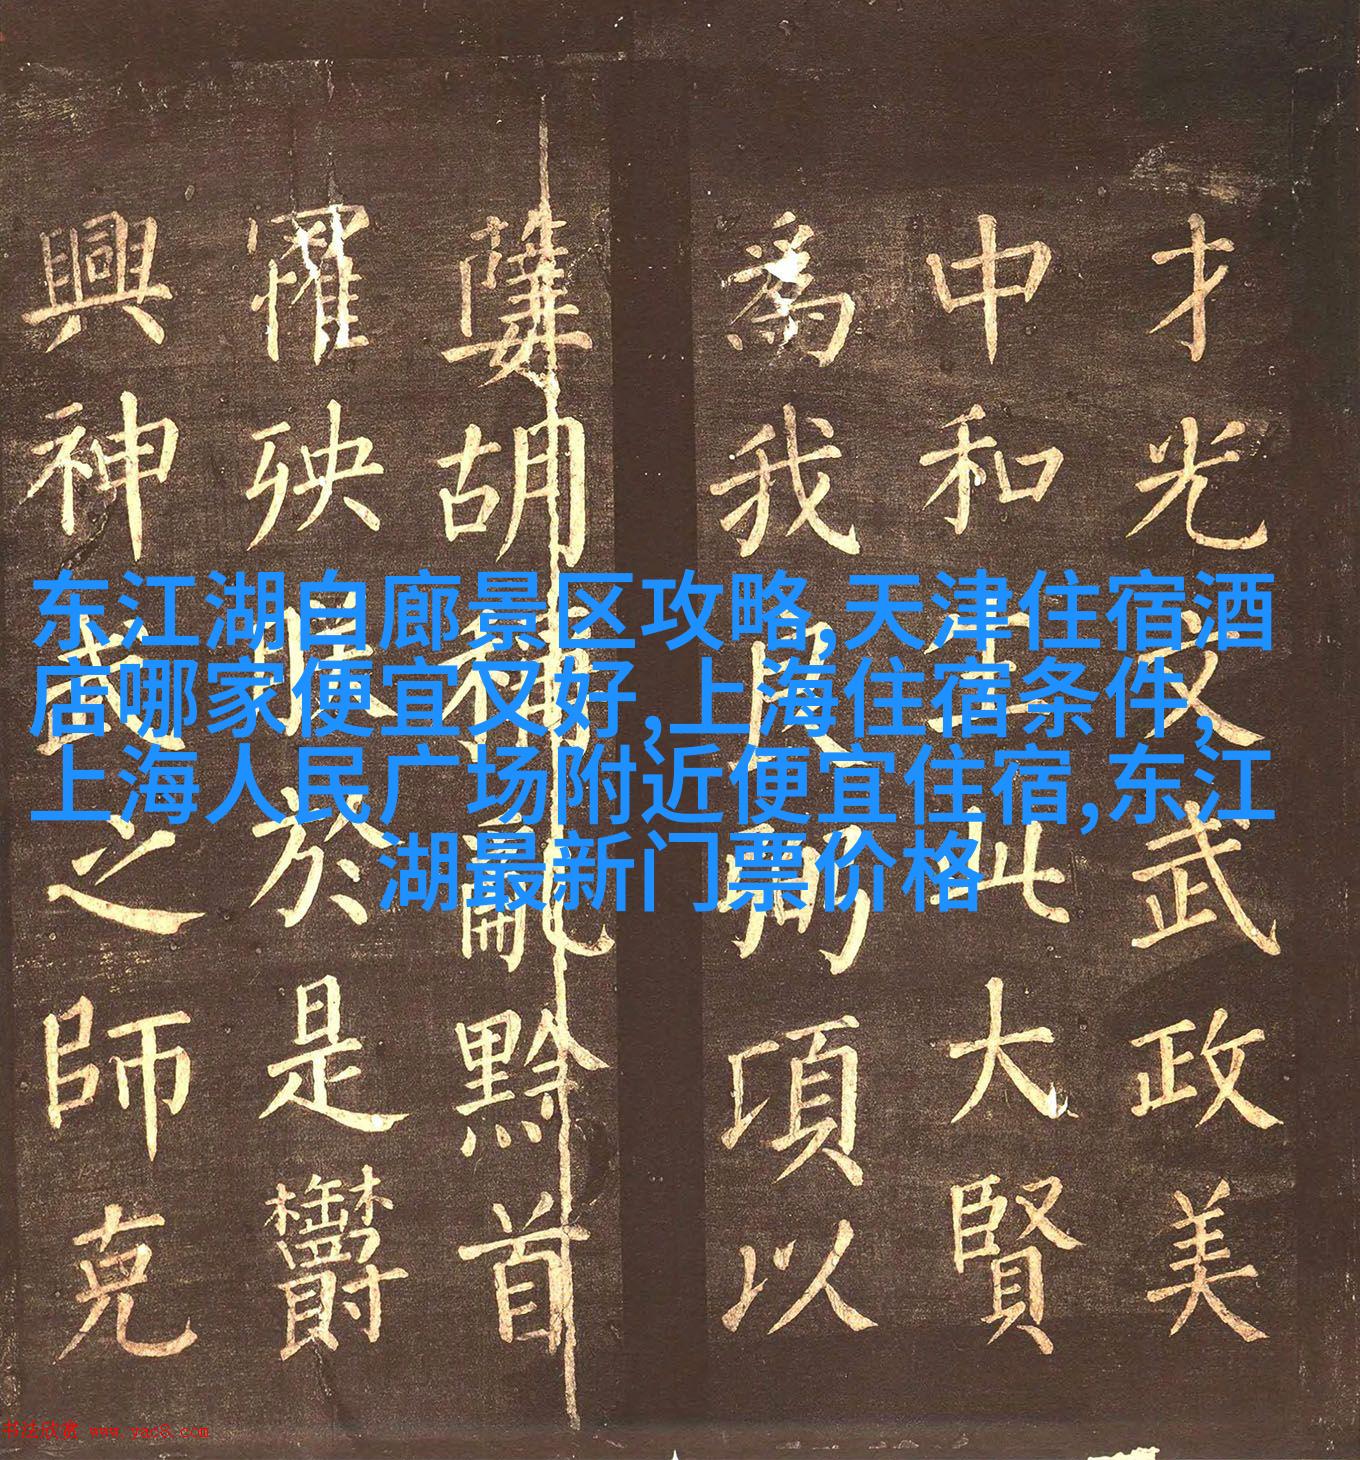 才光文武政美
中和生此大賢
為我股肱項以
胡神亂黔首
罹殃於是欝
興神武之師克
东江湖白廊景区攻略,天津住宿酒
店哪家便宜又好,上海住宿条件,
上海人民广场附近便宜住宿,东江
湖最新门票价格
书法欣赏 www.yac8.com